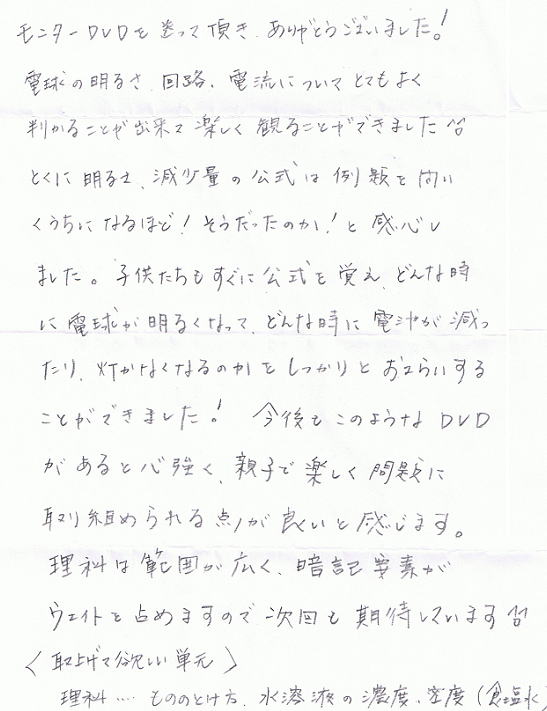 モニターDVDを送って頂き、ありがとうございました。!
電球の明るさ、回路、電流についてとてもよく
判かることが出来て楽しく観ることができました
とくに明るさ、減少量の公式は例題を向い
くうちになるほど!そうだったのか!と感心し
ました。子供たちもすぐに公式を覚え、どんな時
に電球が明るくなって、どんな時に電池が減っ
たり、灯かなくなるのかをしっかりとおさらいする
ことができました!今後もこのようなDVD
があると心強く、親子で楽しく問題に
取り組められる点が良いと感じます。
理科は範囲が広く、暗記要素が
ウェイトを占めますので次回も期待しています
〈取上げて欲しい単元〉
理科…もののとけ方、水溶液の濃度、密度(食塩水)